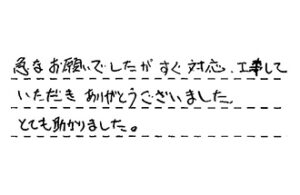 急なお願いでしたが すぐ対応、工事して
いただき ありがとうございました。
とても助かりました。